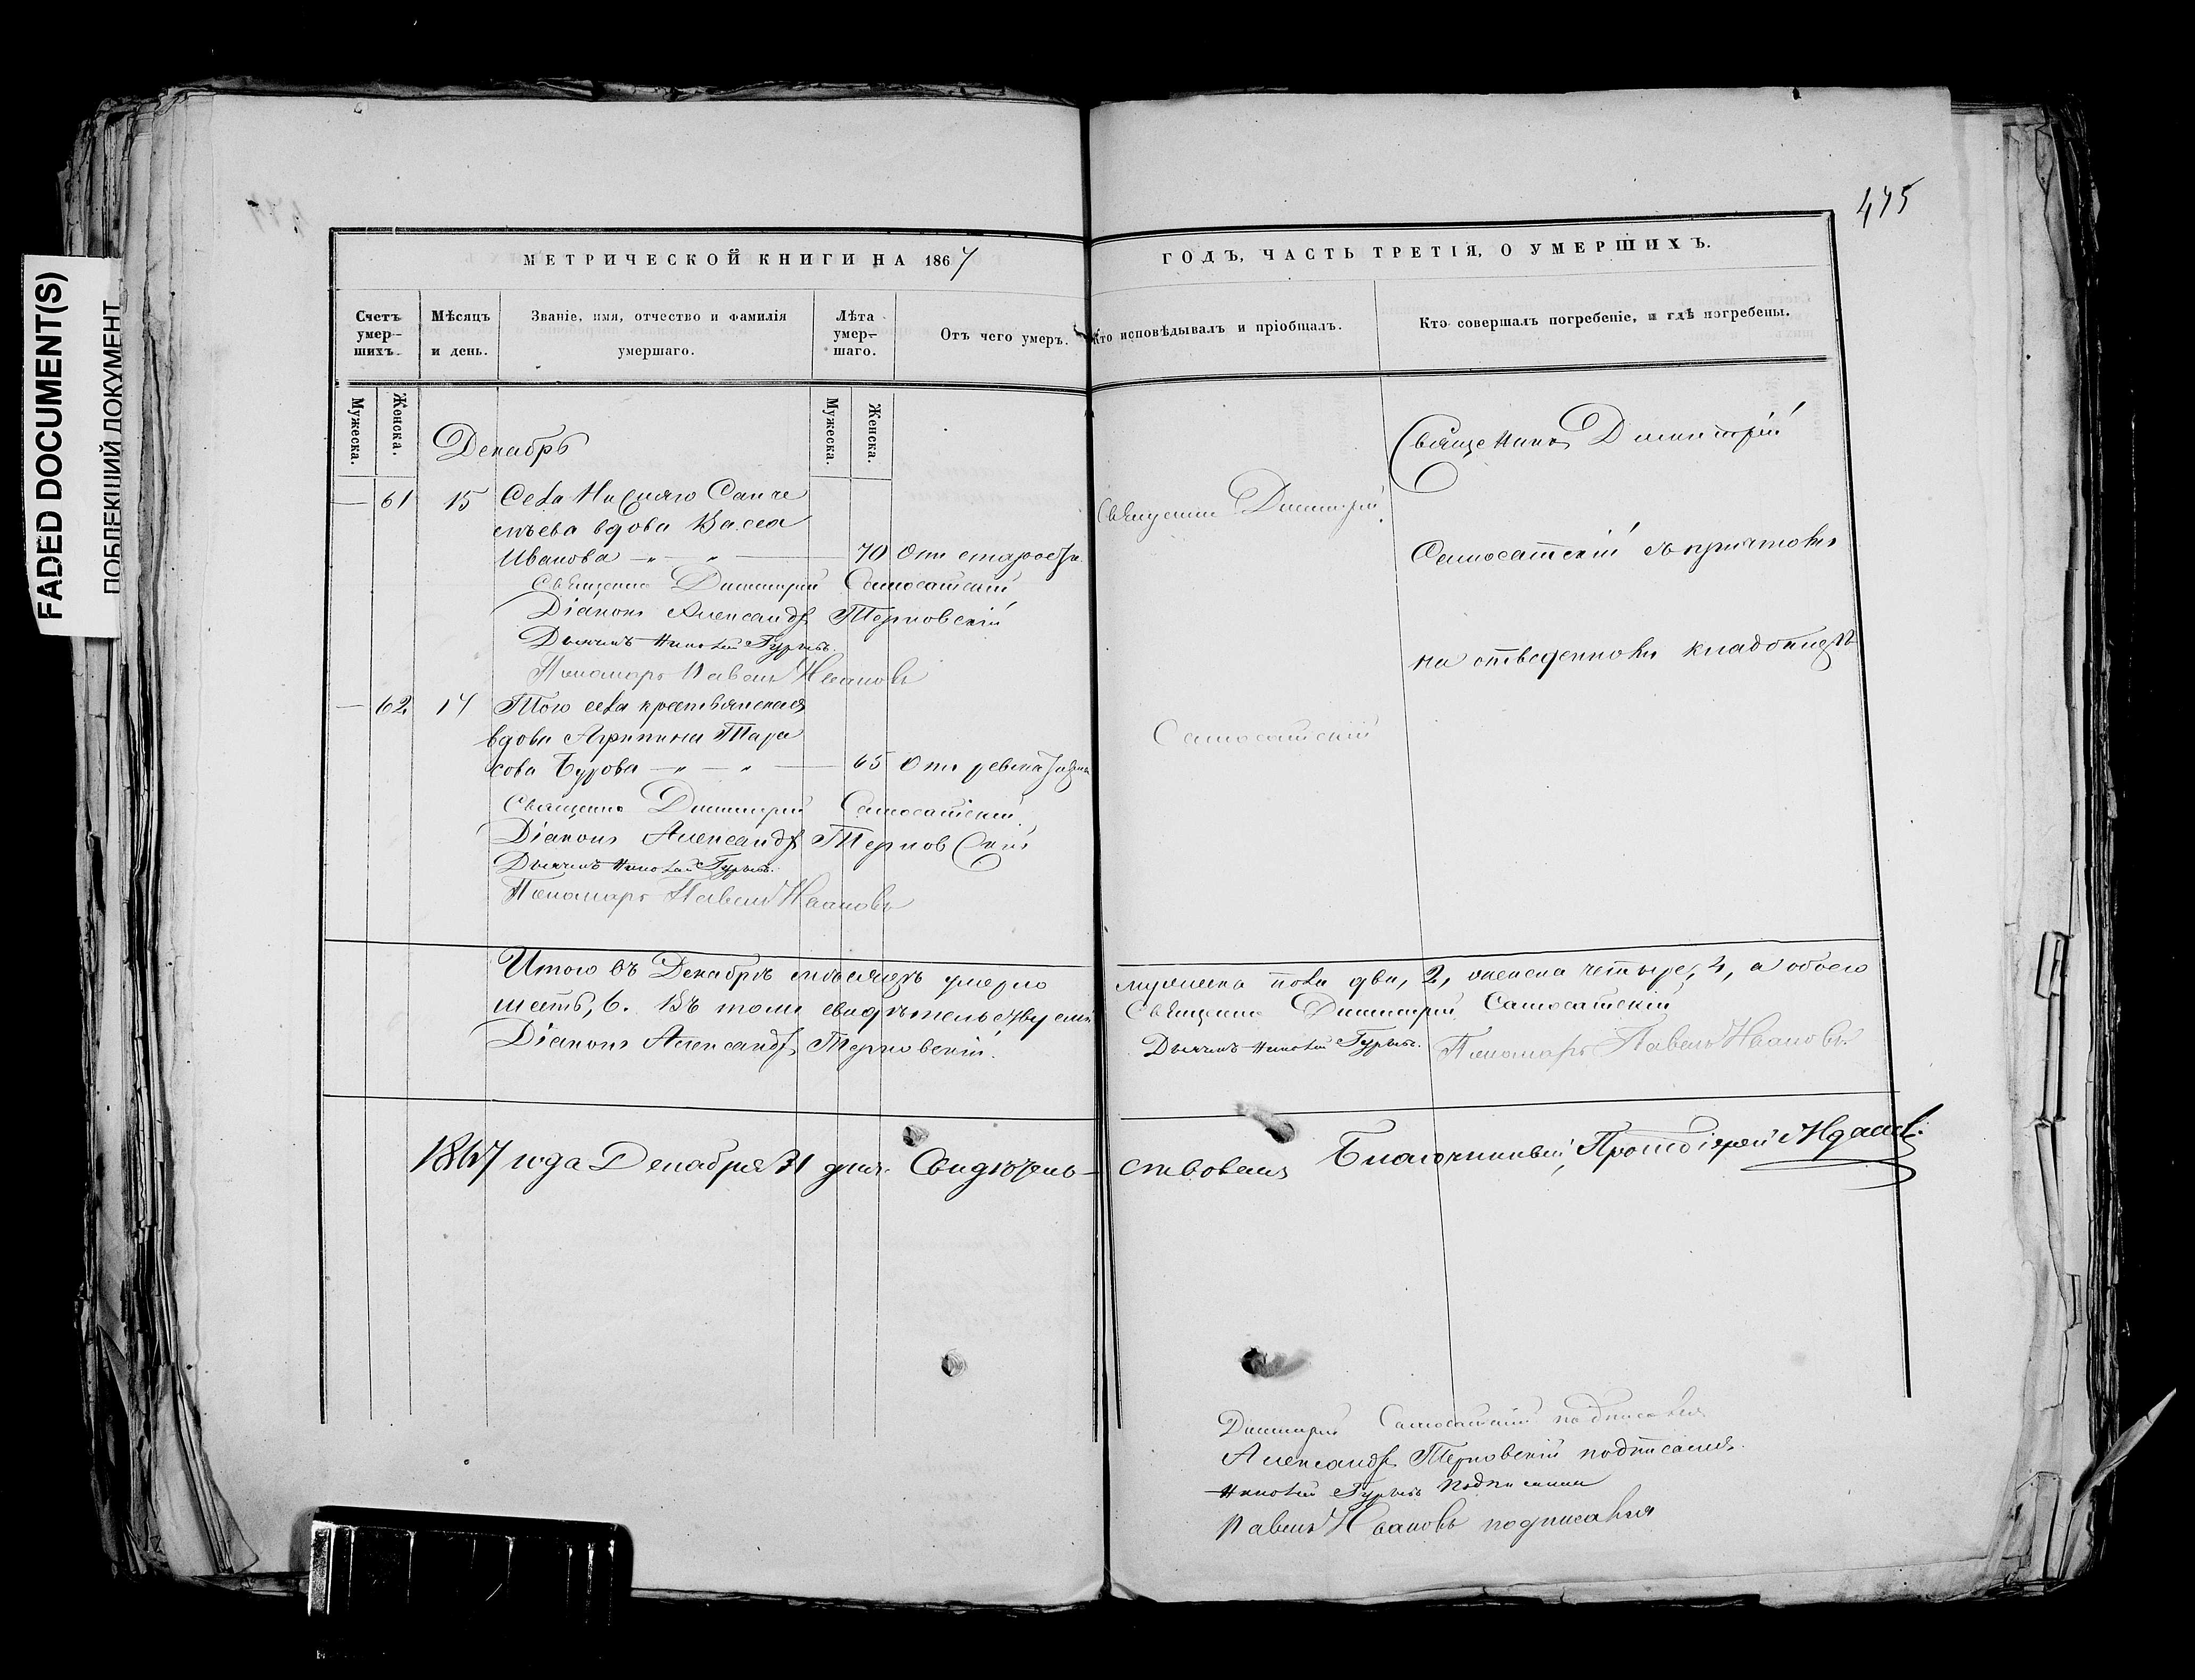 FADED DOCUMENT(S)
ПОБЛЕКШИЙ ДОКУМЕНТ
МЕТРИЧЕСКОЙ КНИГИ НА 1867
Счетъ умер-шихъ.
Мѣсяцъ и день.
Званіе, имя, отчество и фамилія умершаго.
Лѣта умер-шаго.
Отъ чего умеръ.
Мужеска.
Женска.
Мужеска.
Женска.
Декабрь
61 15 Села
вдова Васса
Иванова — „ — „ — 70 Отъ старости
Священно Димитрій Самосатскій
Діаконъ Александръ Терновскій
Дьячекъ Николай Гурьевъ.
Пономарь Павелъ Ивановъ
62 17 Того села крестьянская
вдова Агрипина Тара
сова Бурова — „ — „ — 65 Отъ
Священно Димитрій Самосатскій
Діаконъ Александръ Терновскій
Дьячекъ Николай Гурьевъ.
Пономарь Павелъ Ивановъ
Итого въ Декабрѣ мѣсяцѣ умерло
шесть, 6. Въ томъ свидѣтельствуемъ
Діаконъ Александръ Терновскій.
1867 года Декабря 31 дня. Свидѣтель-
475
ГОДЪ, ЧАСТЬ ТРЕТІЯ, О УМЕРШИХЪ.
Кто исповѣдывалъ и пріобщалъ.
Кто совершалъ погребеніе, и гдѣ погребены.
Священно Димитрій
Самосатскій
Священникъ Димитрій
Самосатскій съ причтомъ
на отведенномъ кладбищѣ
мужеска пола два, 2, женска четыре, 4, а обоего
Священно Димитрій Самосатскій
Дьячекъ Николай Гурьевъ. Пономарь Павелъ Ивановъ.
ствовалъ Благочинный, Протоіерей
Димитрій Самосатскій подписался
Александръ Терновскій подписался.
Николай Гурьевъ подписался
Павелъ Ивановъ подписался